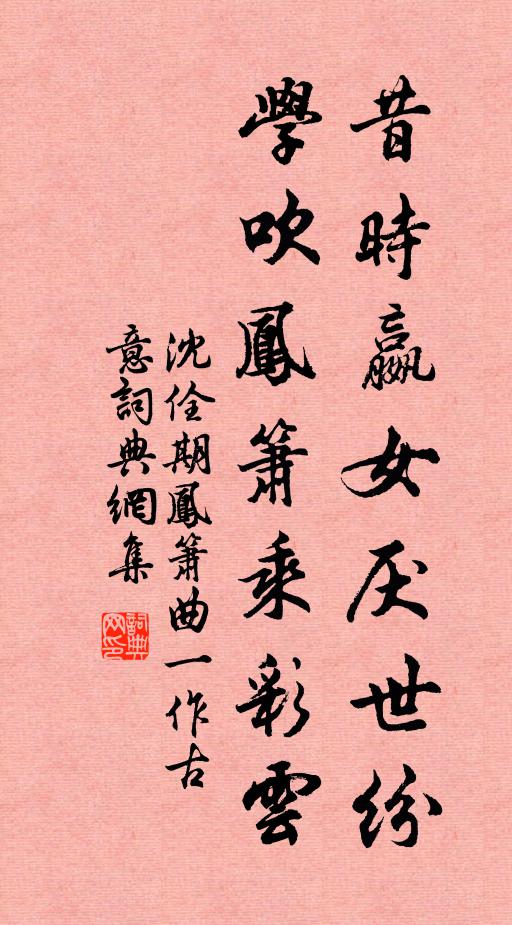 昔時嬴女厌世紛
學吹鳳簫乘彩雲
沈佺期鳳簫曲一作古
意詞典網集
詞典网印